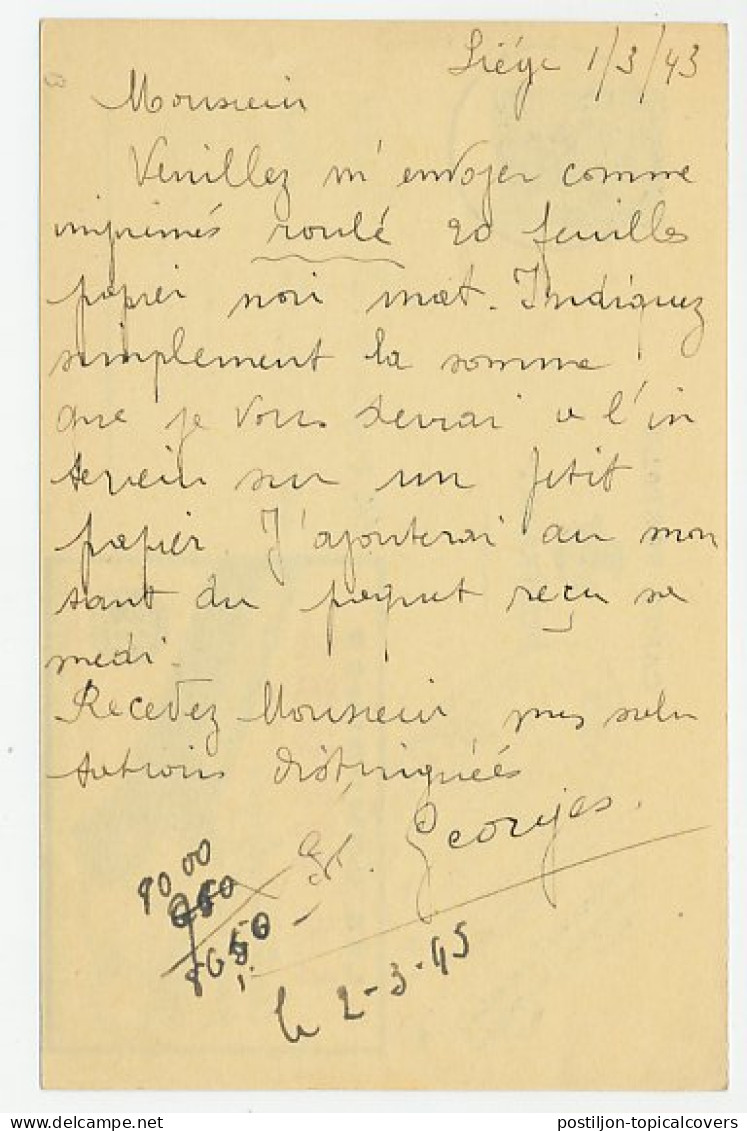 Liége 1/3/43
Monsieur
Veuillez m'envoyer comme
imprimés roulé 20 feuilles
papier noir mat. Indiquez
simplement la somme
que je vous devrai à l'in
terieur sur un petit
papier. J'ajouterai au mon
tant du paquet reçu sa
medi.
Recevez Monsieur mes salu
tations distinguées
Georges.
80 00
650
8650
le 2-3-45
postiljon-topicalcovers